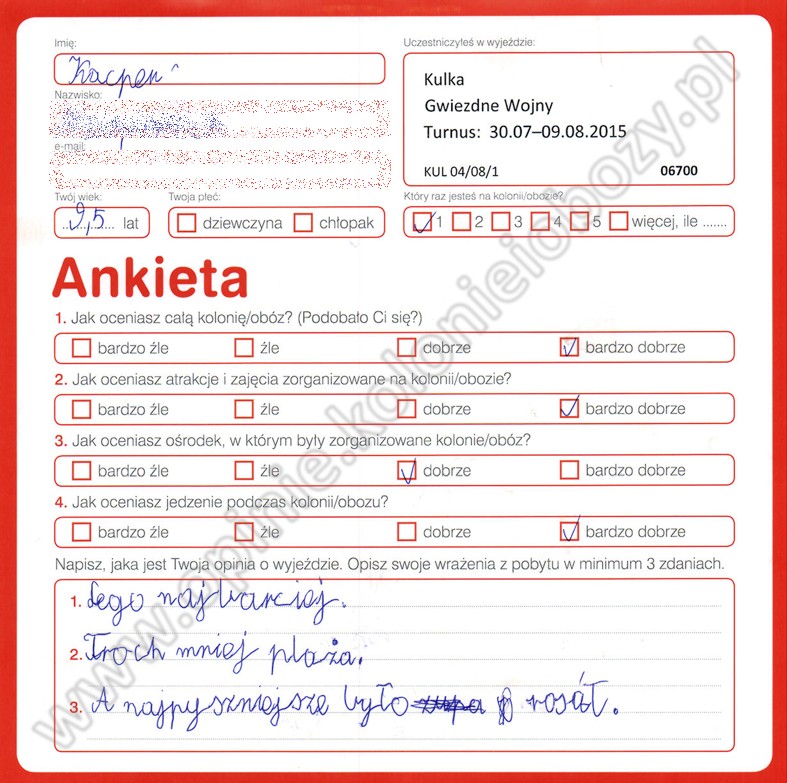 Imię:
Kacper
Uczestniczyłeś w wyjeździe:
Kulka
Gwiezdne Wojny
Turnus: 30.07–09.08.2015
KUL 04/08/1 06700
Nazwisko:
e-mail:
Twój wiek:
9,5 lat
Twoja płeć:
dziewczyna chłopak
Który raz jesteś na kolonii/obozie?
1 2 3 4 5 więcej, ile .......
Ankieta
1. Jak oceniasz całą kolonię/obóz? (Podobało Ci się?)
bardzo źle źle dobrze bardzo dobrze
2. Jak oceniasz atrakcje i zajęcia zorganizowane na kolonii/obozie?
bardzo źle źle dobrze bardzo dobrze
3. Jak oceniasz ośrodek, w którym były zorganizowane kolonie/obóz?
bardzo źle źle dobrze bardzo dobrze
4. Jak oceniasz jedzenie podczas kolonii/obozu?
bardzo źle źle dobrze bardzo dobrze
Napisz, jaka jest Twoja opinia o wyjeździe. Opisz swoje wrażenia z pobytu w minimum 3 zdaniach.
1. Lego najbarciej.
2. Troch mniej plaża.
3. A najpyszniejsze było zupa rosół.
www.opinie.kolonieiobozy.pl